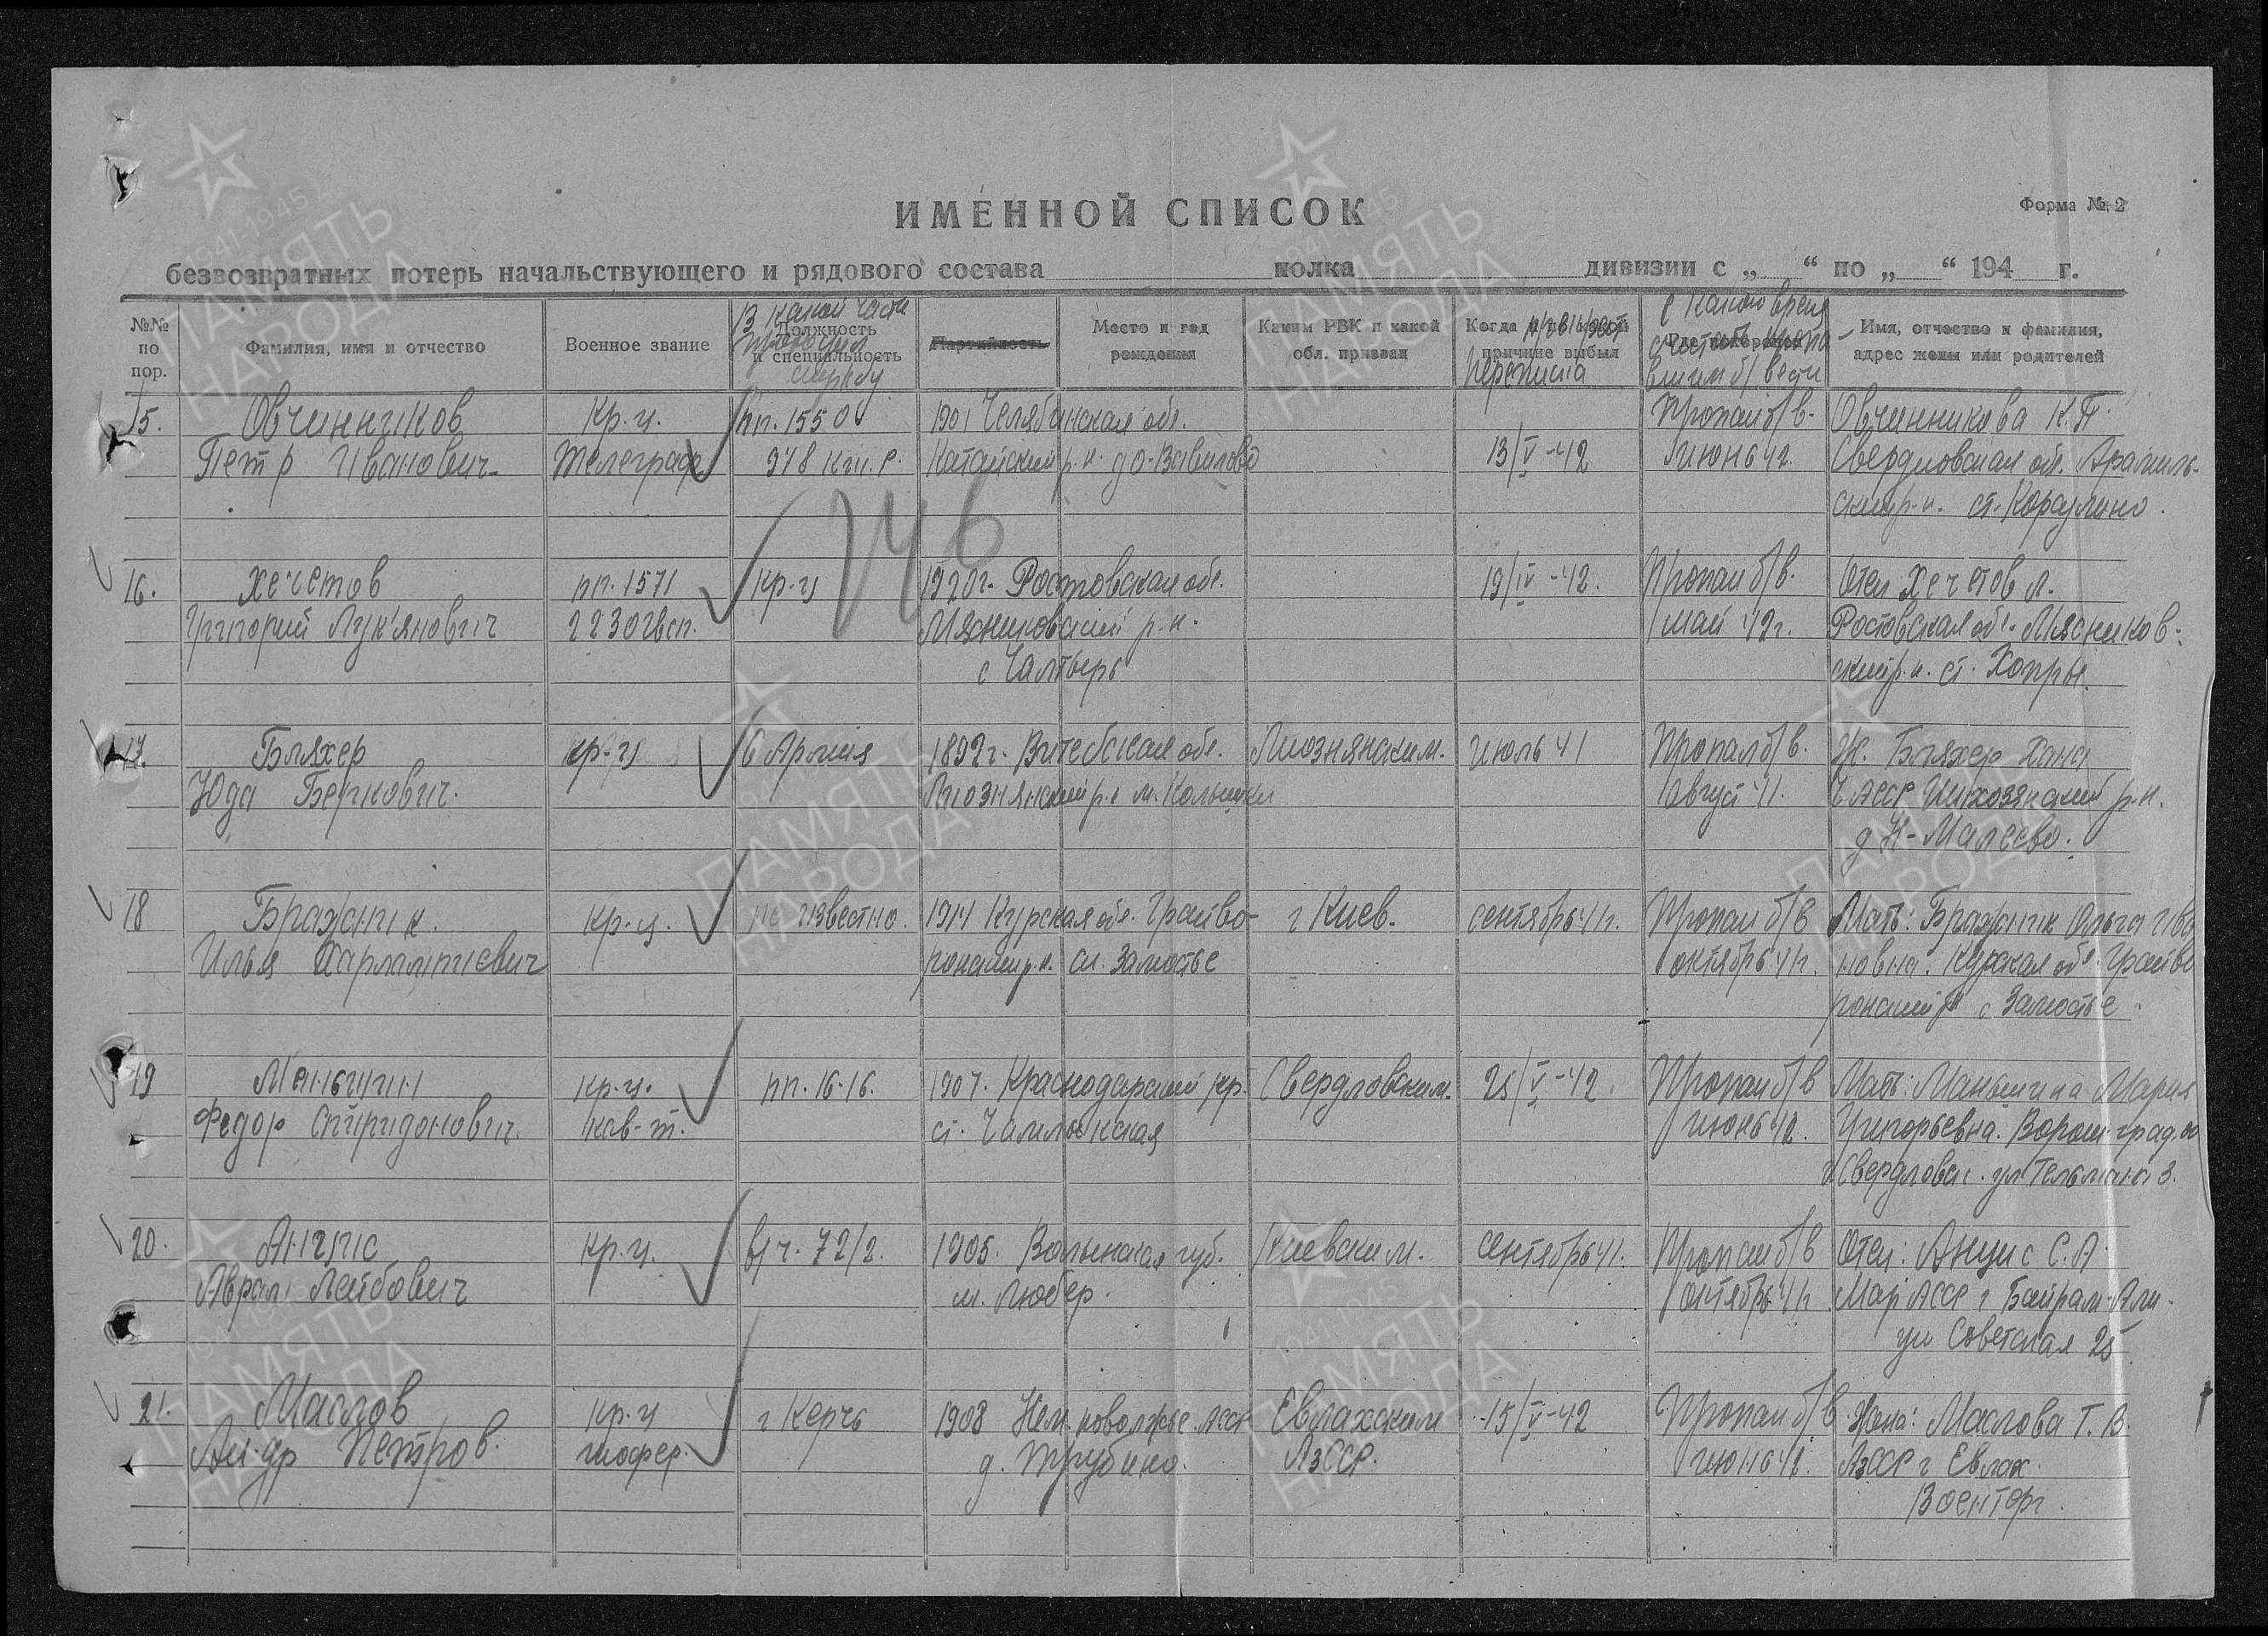 ИМЕННОЙ СПИСОК
Форма № 2
безвозвратных потерь начальствующего и рядового состава полка дивизии с „ “ по „ “ 194 г.
№№ по пор.
Фамилия, имя и отчество
Военное звание
В какой части проходил службу
Должность и специальность
Партийность
Место и год рождения
Каким РВК и какой обл. призван
Когда и по какой причине выбыл
переписка
С какого времени считать пропавшим б/вести
Имя, отчество и фамилия, адрес жены или родителей
15. Овчинников кр-ц. пп. 1550 1901 Челябинская обл. Пропал б/в. Овчинникова К.П.
Петр Иванович Телеграф 978 Катайский р-н. д. Вавилово 13/V-42 июнь 42. Свердловская обл. Арамиль-
ский р-н. ст. Кораулино.
146
16. Хечетов пп. 1571 кр-ц 1920г. Ростовская обл. 19/IV-42. Пропал б/в. Отец Хечетов Л.
Григорий Лукьянович 2230 Мясниковский р-н. май 42г. Ростовская обл. Мясников-
с Чалтырь ский р-н. ст. Хопры.
17. Бляхер кр-ц 6 Армия 1892г. Витебская обл. Лиознянским. июль 41 Пропал б/в. Ж. Бляхер Хана
Юда Беркович. Лиознянский р-н м. Колышки август 41. ЧАССР р-н.
д Н-Малеево.
18 Бражник. кр-ц. не известно. 1914 Курская обл. Грайво- г Киев. сентябрь 41г. Пропал б/в Мать: Бражник Ольга Ива
Илья Харлампиевич ронский р-н. сл. Замостье октябрь 41г. новна. Курская обл. Грайво
ронский р-н с. Замостье
19 Маньшин кр-ц. пп. 1616. 1907. Краснодарский кр. Свердловским. 25/V-42. Пропал б/в Мать: Маньшина Мария
Федор Спиридонович. ст. Чамлыкская июнь 42. Григорьевна. Ворошград. об
г Свердловск. ул Тельмана 3.
20. Анцис кр-ц. в/ч. 72/2. 1905. Волынская губ. Киевским. сентябрь 41. Пропал б/в Отец: Анцис С.А.
Аврам Лейбович м. Любер. октябрь 41г. АССР г Байрам-Али.
ул Советская 25
21. Маслов кр-ц г Керчь 1908 Нем. поволжье. АССР Евлахским -15/V-42 Пропал б/в Жена: Маслова Т.В.
Ал-др Петров. шофер. д. Трубино. АзССР. июнь 42. АзССР г Евлах.
Военторг.